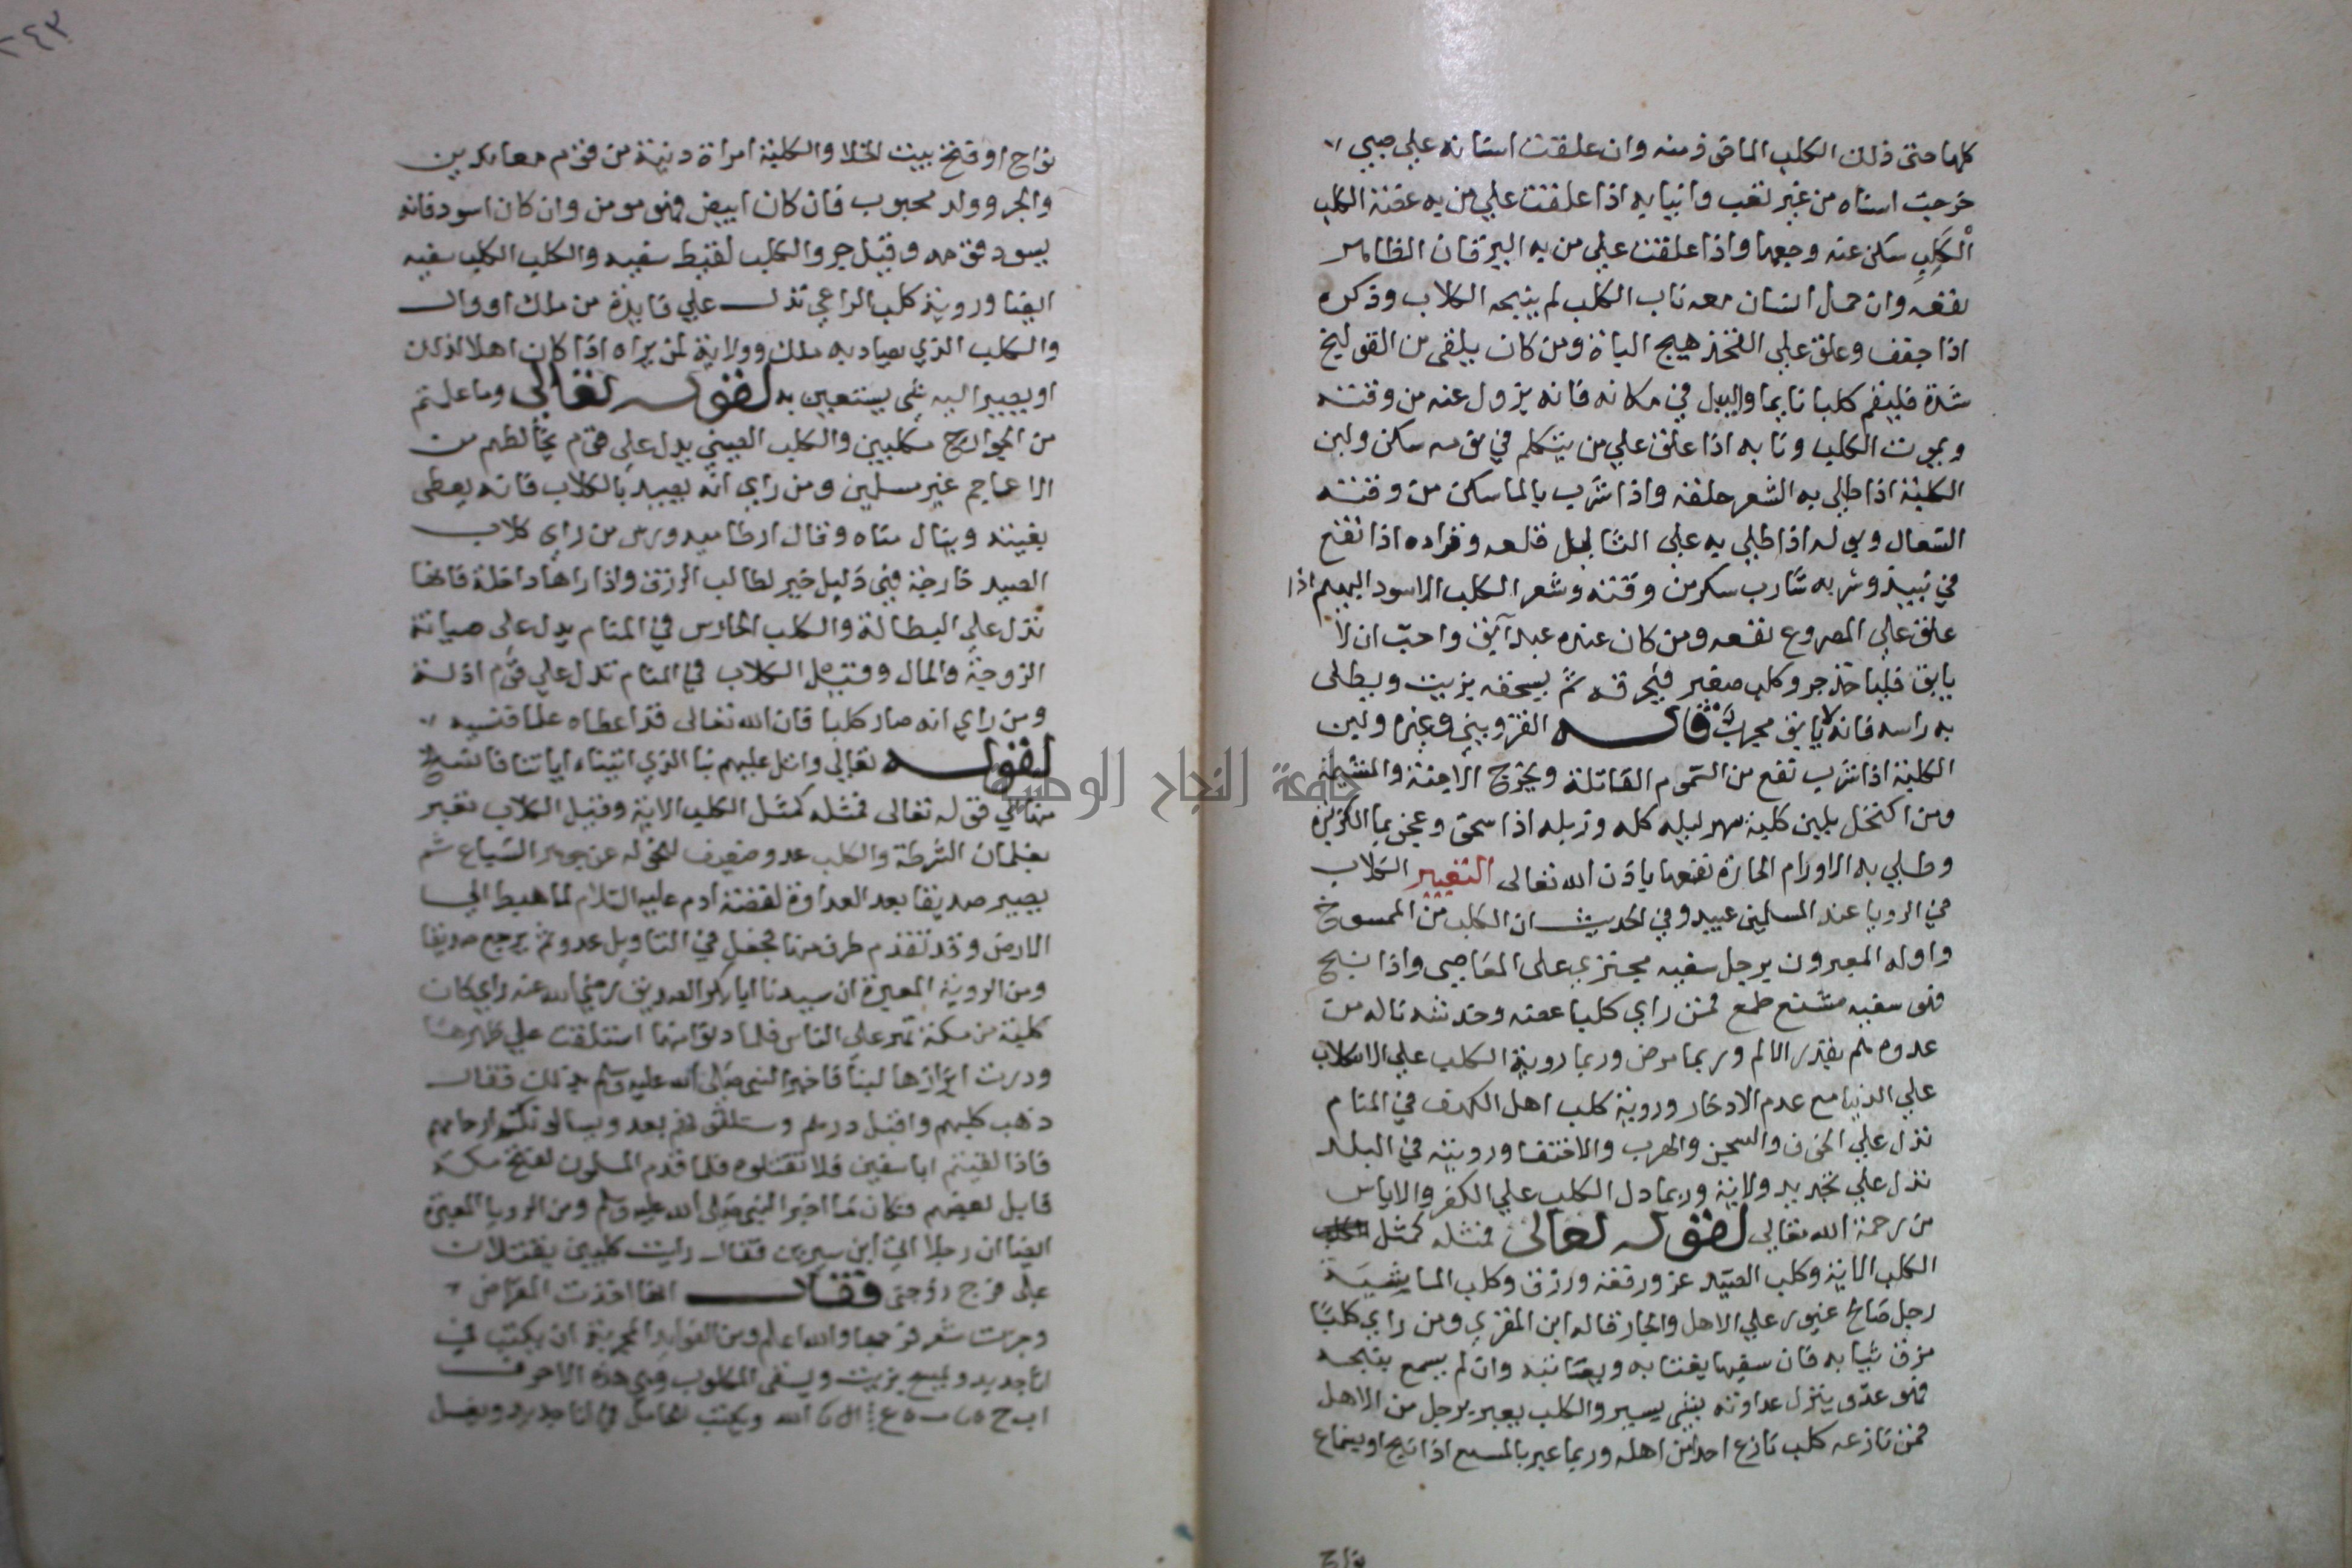 كلها حتى ذلك الكلب الماخوذ منه وان علقت اسنانه علي صبي
خرجت اسناه من غير تعب وانيابه اذا علقت علي من به عضة الكلب
الكَلِب سكن عنه وجعها واذا علقت علي من به اليرقان الظاهر
نفعه وان حمل انسان معه ناب الكلب لم ينبحه الكلاب وذكره
اذا جفف وعلق علي الفخذ هيج الباة ومن كان يلقى من القولنج
شدة فليقم كلبا نايما واليبل في مكانه فانه يزول عنه من وقته
ويموت الكلب ونابه اذا علق علي من يتكلم في نومه سكن ولبن
الكلبة اذا طلي به الشعر حلقه واذا شرب بالما سكن من وقته
السعال وبوله اذا طلي به علي الثاليل قلعه وقراده اذا نقع
في نبيذ وشربه شارب سكر من وقته وشعر الكلب الاسود البهيم اذا
علق علي المصروع نفعه ومن كان عنده عبد آبق واحب ان لا
يابق فلياخذ جرو كلب صغير فيحرقه ثم يسحقه بزيت ويطلى
به راسه فانه لا يابق مجرب قالـــه القزويني وغيره ولبن
الكلبة اذا شرب نفع من السموم القاتلة ويخرج الاجنة والمشيمة
ومن اكتحل بلبن كلبة سهر ليله كله وزبله اذا سحق وعجن بما الكزبرة
وطلي به الاورام الحارة نفعها باذن الله تعالى التعبير الكلاب
في الرويا عند المسلمين عبيد وفي الحديث ان الكلب من الممسوخ
واوله المعبرون برجل سفيه مجتري على المعاصي واذا نبح
فهو سفيه مشنع طمع فمن راي كلبا عضه وخدشه ناله من
عدوه هم بقدر الالم وربما مرض وربما روية الكلب علي الانكلاب
علي الدنيا مع عدم الادخار وروية كلب اهل الكهف في المنام
تدل علي الخوف والسجن والهرب والاختفا ورويته في البلد
تدل علي تجديد ولاية وربما دل الكلب علي الكفر والاياس
من رحمة الله تعالى لقولــه تعالى فمثله كمثل
الكلب الاية وكلب الصيد عز ورفعة ورزق وكلب الماشية
رجل صالح غيور علي الاهل والجار قاله ابن المقري ومن راي كلبًا
مزق ثيابه فان سفيها يغتابه ويعاتبه وان لم يسمع نبحه
فهو عدو يترل عداوته بشي يسير والكلب يعبر برجل من الاهل
فمن نازعه كلب نازع احدا من اهله وربما عبر بالمسع اذا نبح او بنباع
نواح
٢٤٣
نواح او فتح بيت الخلا والكلبة امراة دنية من قوم معاندين
والجرو ولد محبوب فان كان ابيض فهو مومن وان كان اسود فانه
يسود قومه وقيل جرو الكلب لقيط سفيه والكلب الكلب سفيه
ايضا وروية كلب الراعي تدل علي فايدة من ملك او وال
والكلب الذي يصاد به ملك وولاية لمن يراه اذا كان اهلا لذلك
او يصير اليه شي يستعين به لقولــه تعالى وما علمتم
من الجوارح مكلبين والكلب الصيني يدل على قوم يخالطهم من
الاعاجم غير مسلمين ومن راي انه يصيد بالكلاب فانه يعطى
بغيته وينال مناه وقال ارطاميدورس من راي كلاب
الصيد خارجة فهي دليل خير لطالب الرزق واذا راها داخلة فانها
تدل علي البطالة والكلب الحارس في المنام يدل على صيانة
الزوجة والمال وقتيل الكلاب في المنام تدل علي قوم اذلة
ومن راي انه صار كلبا فان الله تعالى قد اعطاه علما فنسيه
لقولــه تعالى واتل عليهم نبا الذي اتيناه اياتنا فانسلخ
منها الي قوله تعالى فمثله كمثل الكلب الاية وقيل الكلاب تعبر
بغلمان الشرطة والكلب عدو ضعيف لتحوله عن جوهر السباع ثم
يصير صديقا بعد العداوة لقصة ادم عليه السلام لما هبط الي
الارض وقد تقدم طرف منها فجعل في التاويل عدو ثم يرجع صديقا
ومن الروية المعبرة ان سيدنا ابا بكر الصديق رضي الله عنه راي كان
كلبة من مكة تهر على الناس فلما دنوا منها استلقت علي ظهرها
ودرت ابزازها لبنًا فاخبر النبي صلى الله عليه وسلم بذلك فقال
ذهب كلبهم واقبل درهم وستلقونهم بعد ويسالونكم ارحامهم
فاذا لقيتم ابا سفين فلا تقتلوه فلما قدم المسلمون لفتح مكة
قابل بعضهم فكان كما اخبر النبي صلى الله عليه وسلم ومن الرويا المعبرة
ايضا ان رجلا اتى ابن سيرين فقال رايت كلبين يقتتلان
على فرج زوجتي فقالـــ انها اخذت المقراض
وجزت شعر فرجها والله اعلم ومن الفوايد المجربة ان يكتب في
انا جديد ويمحي بزيت ويسقى المكلوب وهي هذه الاحرف
ويكتب للحامل في انا جديد ويغسل
جامعة النجاح الوطنية